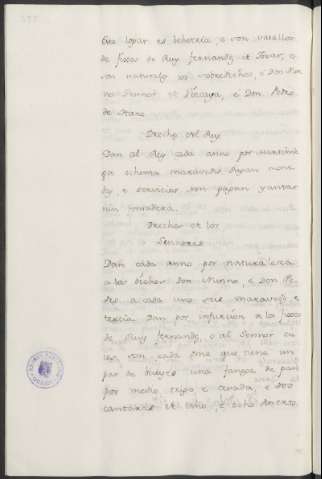 Este logar es behetria, e son vasallos
de fijos de Ruy fernandez de Tovar, e
son naturales los sobredichos, e Don Nu
no Sennor de Vizcaya, e Don Pedro
de Haro
Drechos del Rey
Dan al Rey cada anno por Martiniega
que ochenta maravedis Pagan mone
das, e servicios non pagan yantar
nin fonsadera.
Drechos de los
Sennores
Dan cada anno por naturaleza
a los dichos Don Nunno, e Don Pe
dro a cada uno seis maravedis e
tercia Dan por infurcion a los fijos
de Ruy fernandez, o al Sennor cu
yos son cada one que tiene un
par de bueyes una fanega de pan
por medio trigo e cevada, e dos
cantaras de vino, e esto An otro